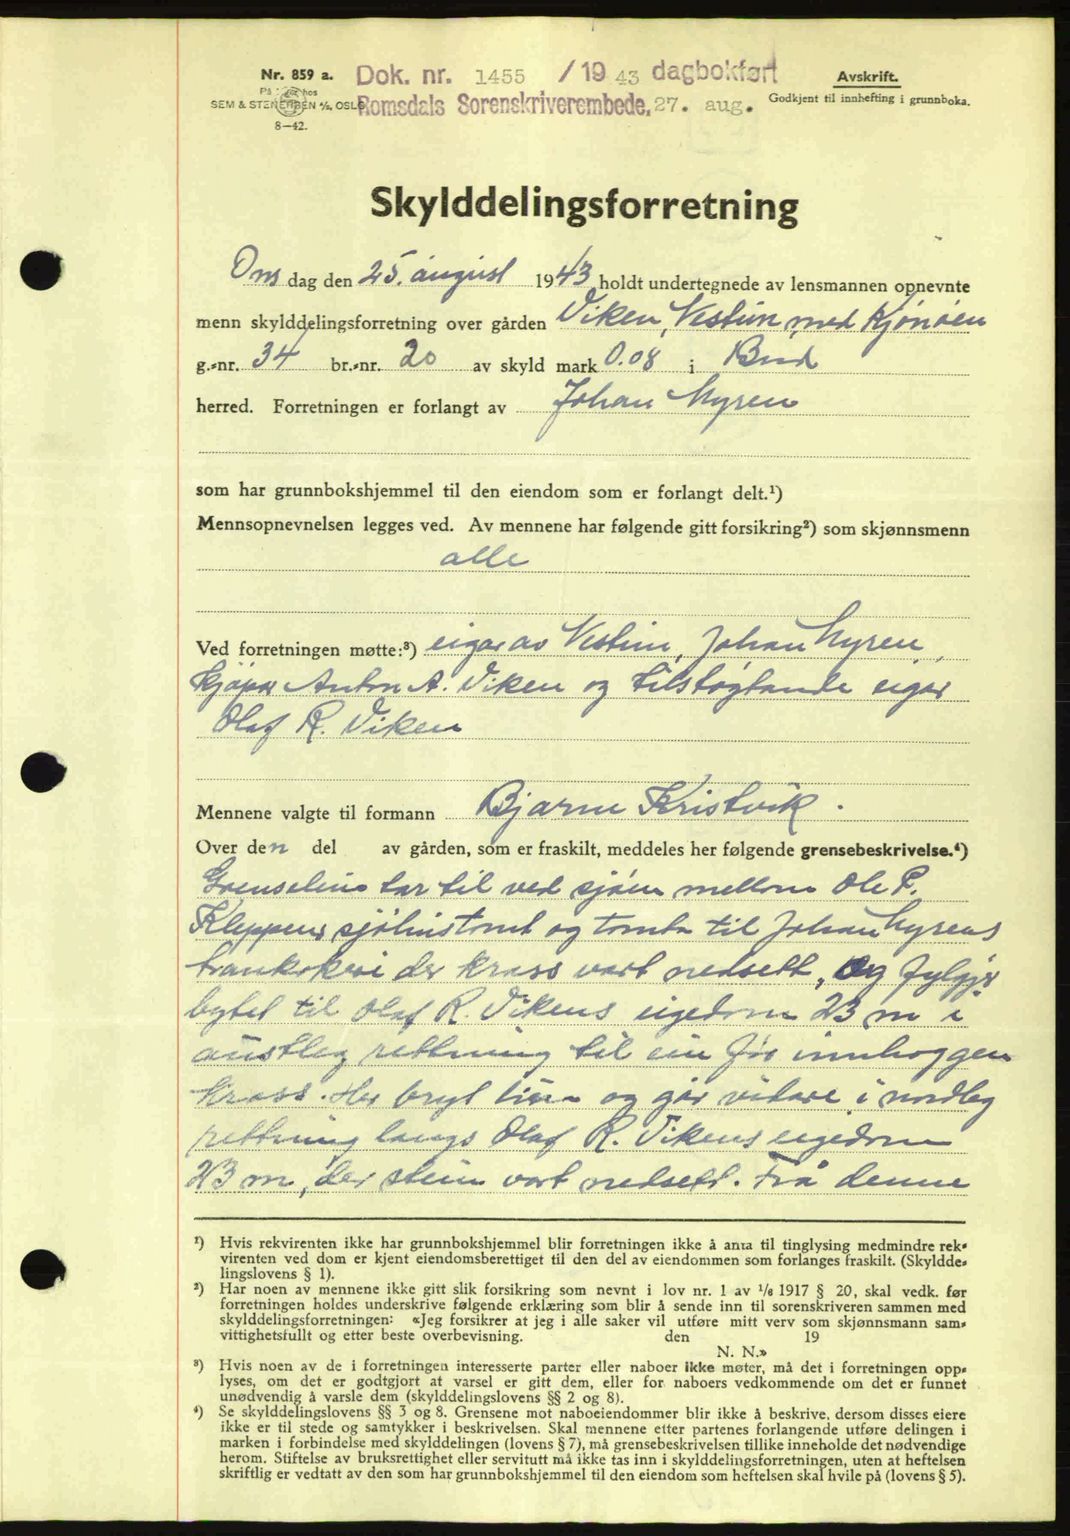 Nr. 859 a.
På lager hos
SEM & STENERSEN A/S, OSLO
8—42.
Dok. nr. 1455 / 19 43 dagbokført
Romsdals Sorenskriverembede, 27. aug.
Avskrift.
Godkjent til innhefting i grunnboka.
Skylddelingsforretning
Ons dag den 25. august 1943 holdt undertegnede av lensmannen opnevnte
menn skylddelingsforretning over gården Viken, Vestun, med Kjønøen
g.-nr. 34 br.-nr. 20 av skyld mark 0.08 i Bud
herred. Forretningen er forlangt av Johan Myren
som har grunnbokshjemmel til den eiendom som er forlangt delt.¹)
Mennsopnevnelsen legges ved. Av mennene har følgende gitt forsikring²) som skjønnsmenn
alle
Ved forretningen møtte:³) eigar av Vestun, Johan Myren,
kjøpar Anton A. Viken og tilstøytande eigar
Olaf R. Viken
Mennene valgte til formann Bjarne Kristvik.
Over den del av gården, som er fraskilt, meddeles her følgende grensebeskrivelse.⁴)
Grenselina tar til ved sjøen mellom Ole P.
Kleppens sjøhustomt og tomta til Johan Myrens
trankokeri der kross vart nedsett, og fylgjer
bytet til Olaf R. Vikens eigedom 23 m i
austleg rettning til ein før innhoggen
kross. Her bryt lina og går vidare i nordleg
rettning langs Olaf R. Vikens eigedom
23 m, der stein vart nedsett. Frå denne
¹) Hvis rekvirenten ikke har grunnbokshjemmel blir forretningen ikke å anta til tinglysing medmindre rek-
virenten ved dom er kjent eiendomsberettiget til den del av eiendommen som forlanges fraskilt. (Skyldde-
lingslovens § 1).
²) Har noen av mennene ikke gitt slik forsikring som nevnt i lov nr. 1 av 1/6 1917 § 20, skal vedk. før
forretningen holdes underskrive følgende erklæring som blir å sende inn til sorenskriveren sammen med
skylddelingsforretningen: «Jeg forsikrer at jeg i alle saker vil utføre mitt verv som skjønnsmann sam-
vittighetsfullt og etter beste overbevisning. den 19
N. N.»
³) Hvis noen av de i forretningen interesserte parter eller naboer ikke møter, må det i forretningen opp-
lyses, om det er godtgjort at varsel er gitt dem, eller for naboers vedkommende om det er funnet
unødvendig å varsle dem (skylddelingslovens §§ 2 og 8).
⁴) Se skylddelingslovens §§ 3 og 8. Grensene mot naboeiendommer blir ikke å beskrive, dersom disses eiere
ikke er til stede og samtykker i beskrivelsen. Skal mennene etter partenes forlangende utføre delingen i
marken i forbindelse med skylddelingen (lovens § 7), må grensebeskrivelsen tillike inneholde det nødvendige
herom. Stiftelse av bruksrettighet eller servitutt må ikke tas inn i skylddelingsforretningen, uten at heftelsen
skriftlig er vedtatt av den som har grunnbokshjemmel til den eiendom som heftelsen skal hvile på (lovens § 5).